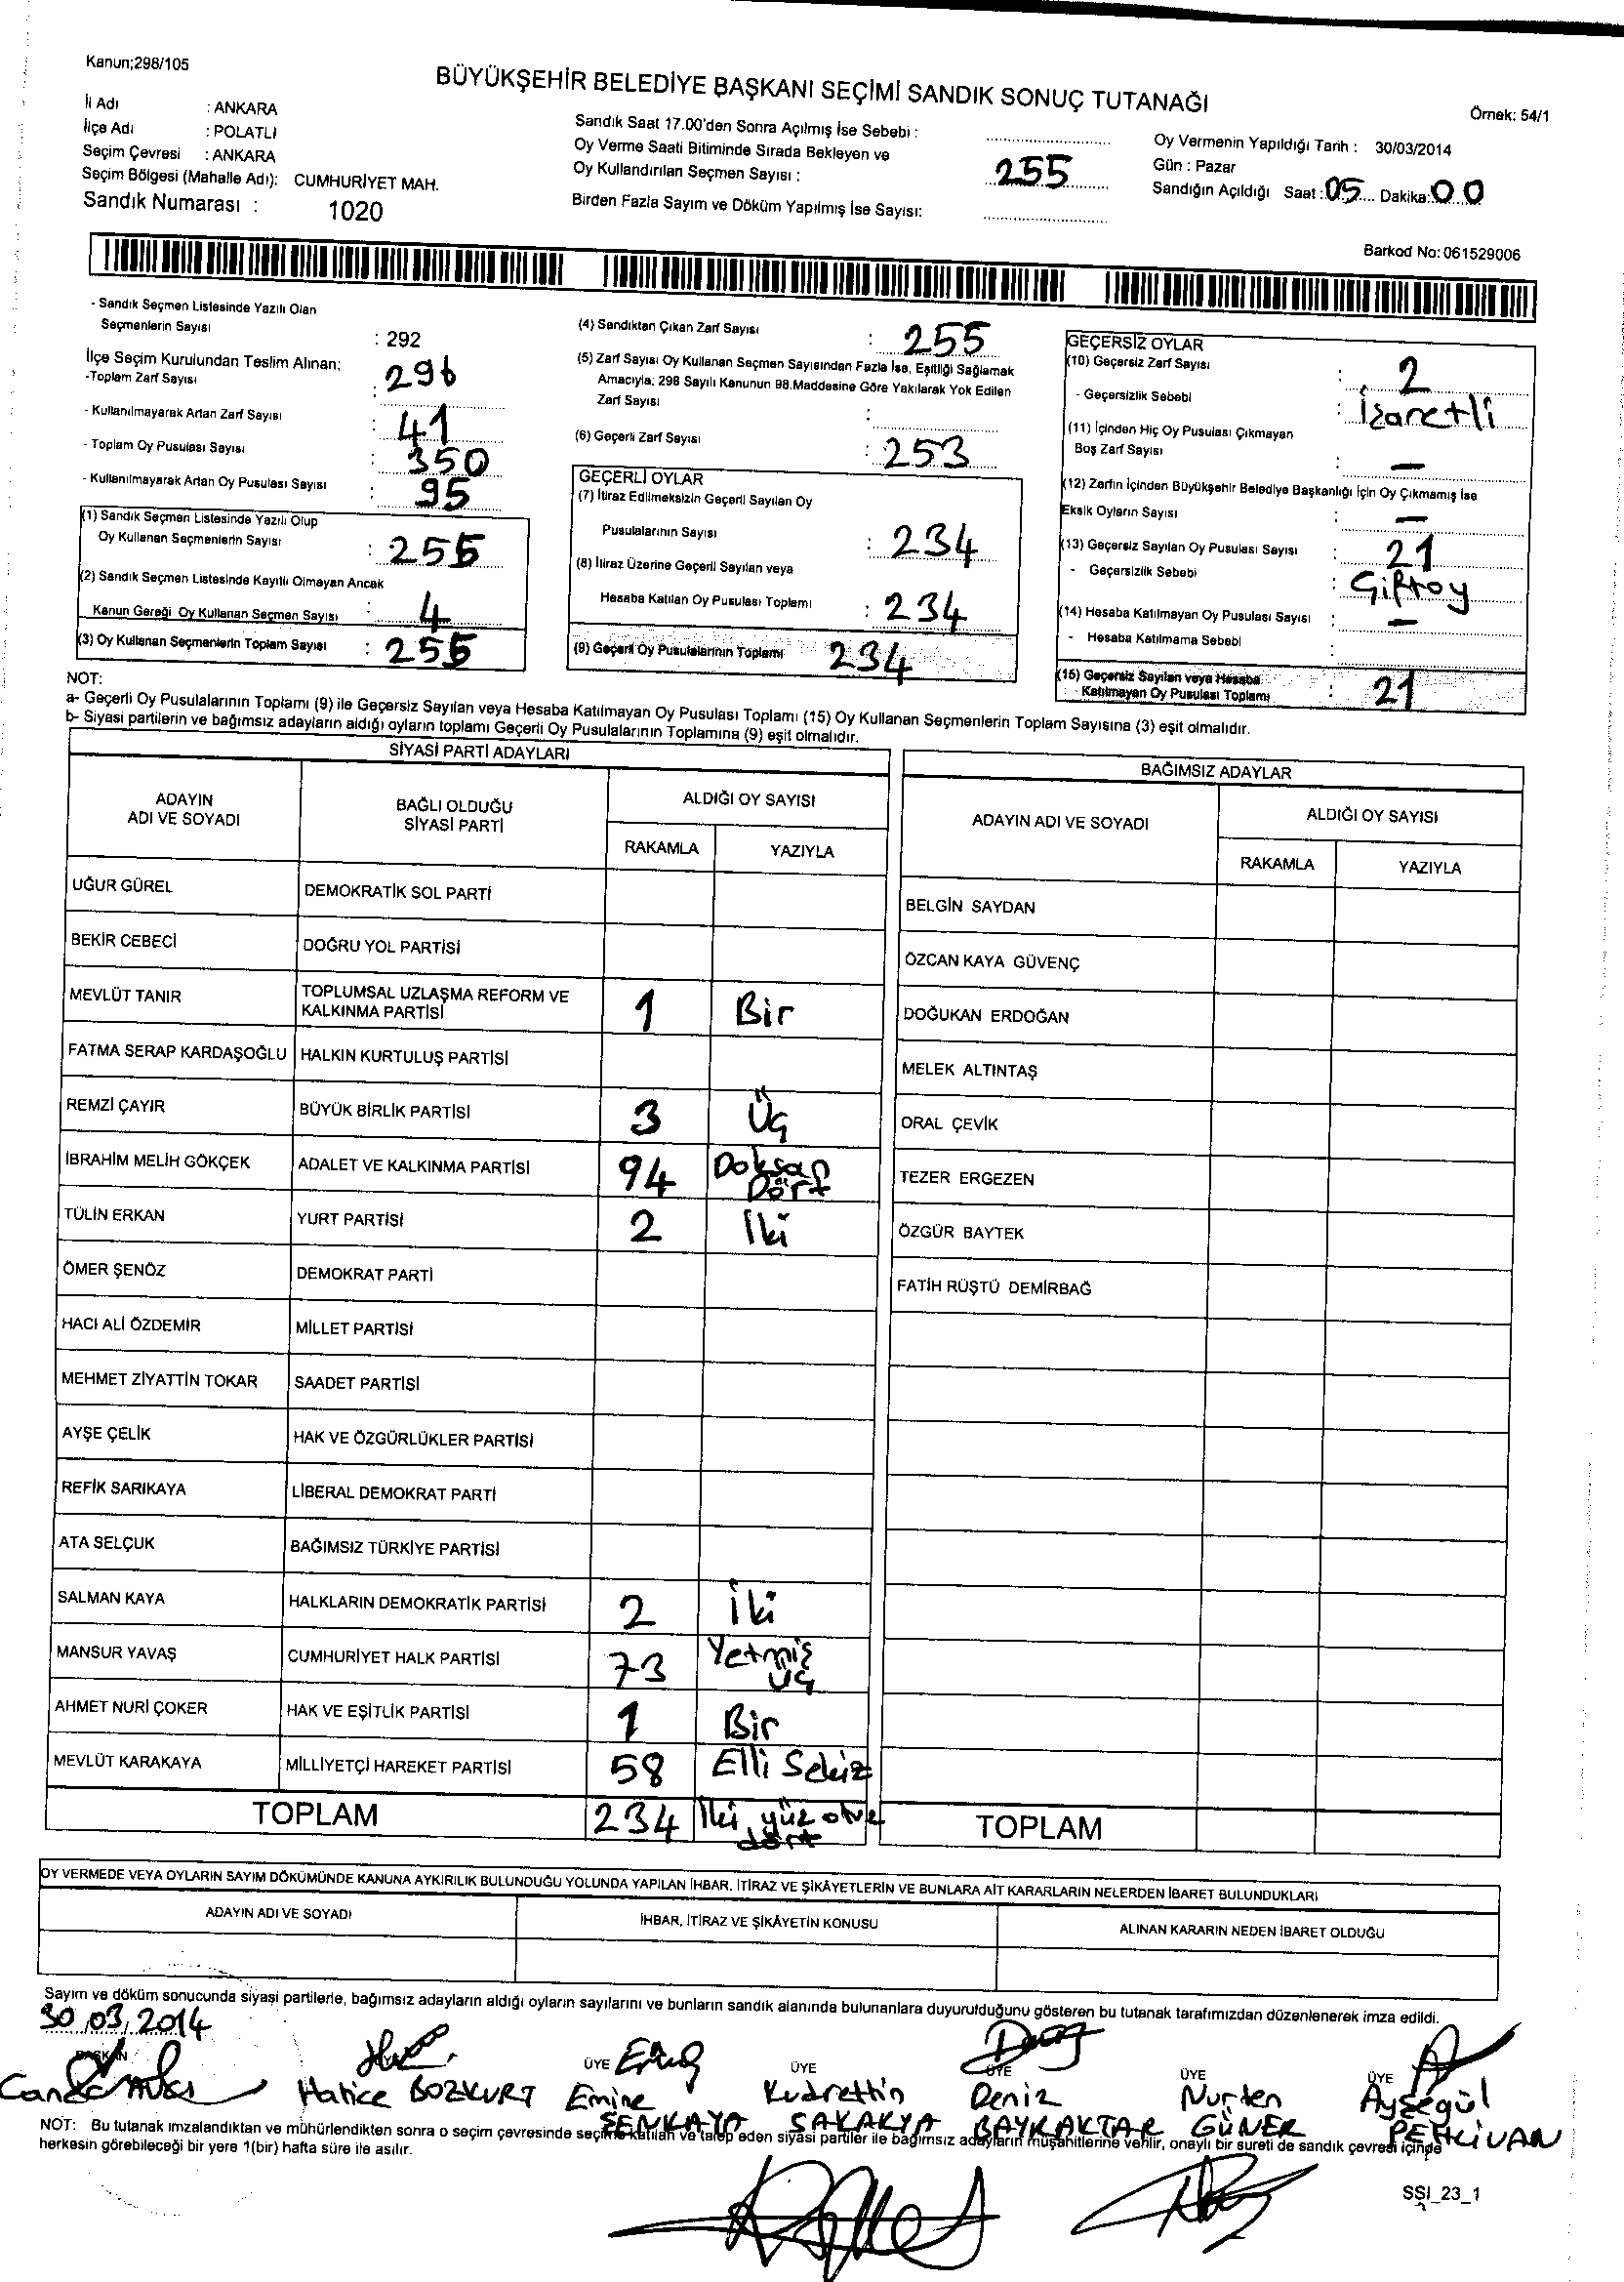 Kanun;298/105
BÜYÜKŞEHİR BELEDİYE BAŞKANI SEÇİMİ SANDIK SONUÇ TUTANAĞI
Örnek: 54/1
İl Adı : ANKARA
İlçe Adı : POLATLI
Seçim Çevresi : ANKARA
Seçim Bölgesi (Mahalle Adı): CUMHURİYET MAH.
Sandık Numarası : 1020
Sandık Saat 17.00'den Sonra Açılmış İse Sebebi :
Oy Verme Saati Bitiminde Sırada Bekleyen ve
Oy Kullandırılan Seçmen Sayısı : 255
Birden Fazla Sayım ve Döküm Yapılmış İse Sayısı:
Oy Vermenin Yapıldığı Tarih : 30/03/2014
Gün : Pazar
Sandığın Açıldığı Saat : 05 Dakika: 00
Barkod No: 061529006
- Sandık Seçmen Listesinde Yazılı Olan
Seçmenlerin Sayısı : 292
İlçe Seçim Kurulundan Teslim Alınan;
-Toplam Zarf Sayısı : 296
- Kullanılmayarak Artan Zarf Sayısı : 41
- Toplam Oy Pusulası Sayısı : 350
- Kullanılmayarak Artan Oy Pusulası Sayısı : 95
(1) Sandık Seçmen Listesinde Yazılı Olup
Oy Kullanan Seçmenlerin Sayısı : 255
(2) Sandık Seçmen Listesinde Kayıtlı Olmayan Ancak
Kanun Gereği Oy Kullanan Seçmen Sayısı : 4
(3) Oy Kullanan Seçmenlerin Toplam Sayısı : 255
(4) Sandıktan Çıkan Zarf Sayısı : 255
(5) Zarf Sayısı Oy Kullanan Seçmen Sayısından Fazla İse, Eşitliği Sağlamak
Amacıyla; 298 Sayılı Kanunun 98.Maddesine Göre Yakılarak Yok Edilen
Zarf Sayısı :
(6) Geçerli Zarf Sayısı : 253
GEÇERLİ OYLAR
(7) İtiraz Edilmeksizin Geçerli Sayılan Oy
Pusulalarının Sayısı : 234
(8) İtiraz Üzerine Geçerli Sayılan veya
Hesaba Katılan Oy Pusulası Toplamı : 234
(9) Geçerli Oy Pusulalarının Toplamı 234
GEÇERSİZ OYLAR
(10) Geçersiz Zarf Sayısı : 2
- Geçersizlik Sebebi : İşaretli
(11) İçinden Hiç Oy Pusulası Çıkmayan
Boş Zarf Sayısı : —
(12) Zarfın İçinden Büyükşehir Belediye Başkanlığı İçin Oy Çıkmamış İse
Eksik Oyların Sayısı : —
(13) Geçersiz Sayılan Oy Pusulası Sayısı : 21
- Geçersizlik Sebebi : Çiftoy
(14) Hesaba Katılmayan Oy Pusulası Sayısı : —
- Hesaba Katılmama Sebebi :
(15) Geçersiz Sayılan veya Hesaba
Katılmayan Oy Pusulası Toplamı : 21
NOT:
a- Geçerli Oy Pusulalarının Toplamı (9) ile Geçersiz Sayılan veya Hesaba Katılmayan Oy Pusulası Toplamı (15) Oy Kullanan Seçmenlerin Toplam Sayısına (3) eşit olmalıdır.
b- Siyasi partilerin ve bağımsız adayların aldığı oyların toplamı Geçerli Oy Pusulalarının Toplamına (9) eşit olmalıdır.
SİYASİ PARTİ ADAYLARI
ADAYIN ADI VE SOYADI
BAĞLI OLDUĞU SİYASİ PARTİ
ALDIĞI OY SAYISI
RAKAMLA YAZIYLA
UĞUR GÜREL DEMOKRATİK SOL PARTİ
BEKİR CEBECİ DOĞRU YOL PARTİSİ
MEVLÜT TANIR TOPLUMSAL UZLAŞMA REFORM VE KALKINMA PARTİSİ 1 Bir
FATMA SERAP KARDAŞOĞLU HALKIN KURTULUŞ PARTİSİ
REMZİ ÇAYIR BÜYÜK BİRLİK PARTİSİ 3 Üç
İBRAHİM MELİH GÖKÇEK ADALET VE KALKINMA PARTİSİ 94 Doksan Dört
TÜLİN ERKAN YURT PARTİSİ 2 İki
ÖMER ŞENÖZ DEMOKRAT PARTİ
HACI ALİ ÖZDEMİR MİLLET PARTİSİ
MEHMET ZİYATTİN TOKAR SAADET PARTİSİ
AYŞE ÇELİK HAK VE ÖZGÜRLÜKLER PARTİSİ
REFİK SARIKAYA LİBERAL DEMOKRAT PARTİ
ATA SELÇUK BAĞIMSIZ TÜRKİYE PARTİSİ
SALMAN KAYA HALKLARIN DEMOKRATİK PARTİSİ 2 İki
MANSUR YAVAŞ CUMHURİYET HALK PARTİSİ 73 Yetmiş üç
AHMET NURİ ÇOKER HAK VE EŞİTLİK PARTİSİ 1 Bir
MEVLÜT KARAKAYA MİLLİYETÇİ HAREKET PARTİSİ 58 Elli Sekiz
TOPLAM 234 İki yüz otuz dört
BAĞIMSIZ ADAYLAR
ADAYIN ADI VE SOYADI
ALDIĞI OY SAYISI
RAKAMLA YAZIYLA
BELGİN SAYDAN
ÖZCAN KAYA GÜVENÇ
DOĞUKAN ERDOĞAN
MELEK ALTINTAŞ
ORAL ÇEVİK
TEZER ERGEZEN
ÖZGÜR BAYTEK
FATİH RÜŞTÜ DEMİRBAĞ
TOPLAM
OY VERMEDE VEYA OYLARIN SAYIM DÖKÜMÜNDE KANUNA AYKIRILIK BULUNDUĞU YOLUNDA YAPILAN İHBAR, İTİRAZ VE ŞİKÂYETLERİN VE BUNLARA AİT KARARLARIN NELERDEN İBARET BULUNDUKLARI
ADAYIN ADI VE SOYADI
İHBAR, İTİRAZ VE ŞİKÂYETİN KONUSU
ALINAN KARARIN NEDEN İBARET OLDUĞU
Sayım ve döküm sonucunda siyasi partilerle, bağımsız adayların aldığı oyların sayılarını ve bunların sandık alanında bulunanlara duyurulduğunu gösteren bu tutanak tarafımızdan düzenlenerek imza edildi.
30.03.2014
BAŞKAN ÜYE ÜYE ÜYE ÜYE ÜYE
Hatice BOZKURT
Emine ŞENKAYA
Kudrettin SAKAKYA
Deniz BAYRAKTAR
Nurten GÜNER
Ayşegül PEHLİVAN
NOT: Bu tutanak imzalandıktan ve mühürlendikten sonra o seçim çevresinde seçime katılan ve talep eden siyasi partiler ile bağımsız adayların müşahitlerine verilir, onaylı bir sureti de sandık çevresi içinde
herkesin görebileceği bir yere 1(bir) hafta süre ile asılır.
SSI_23_1